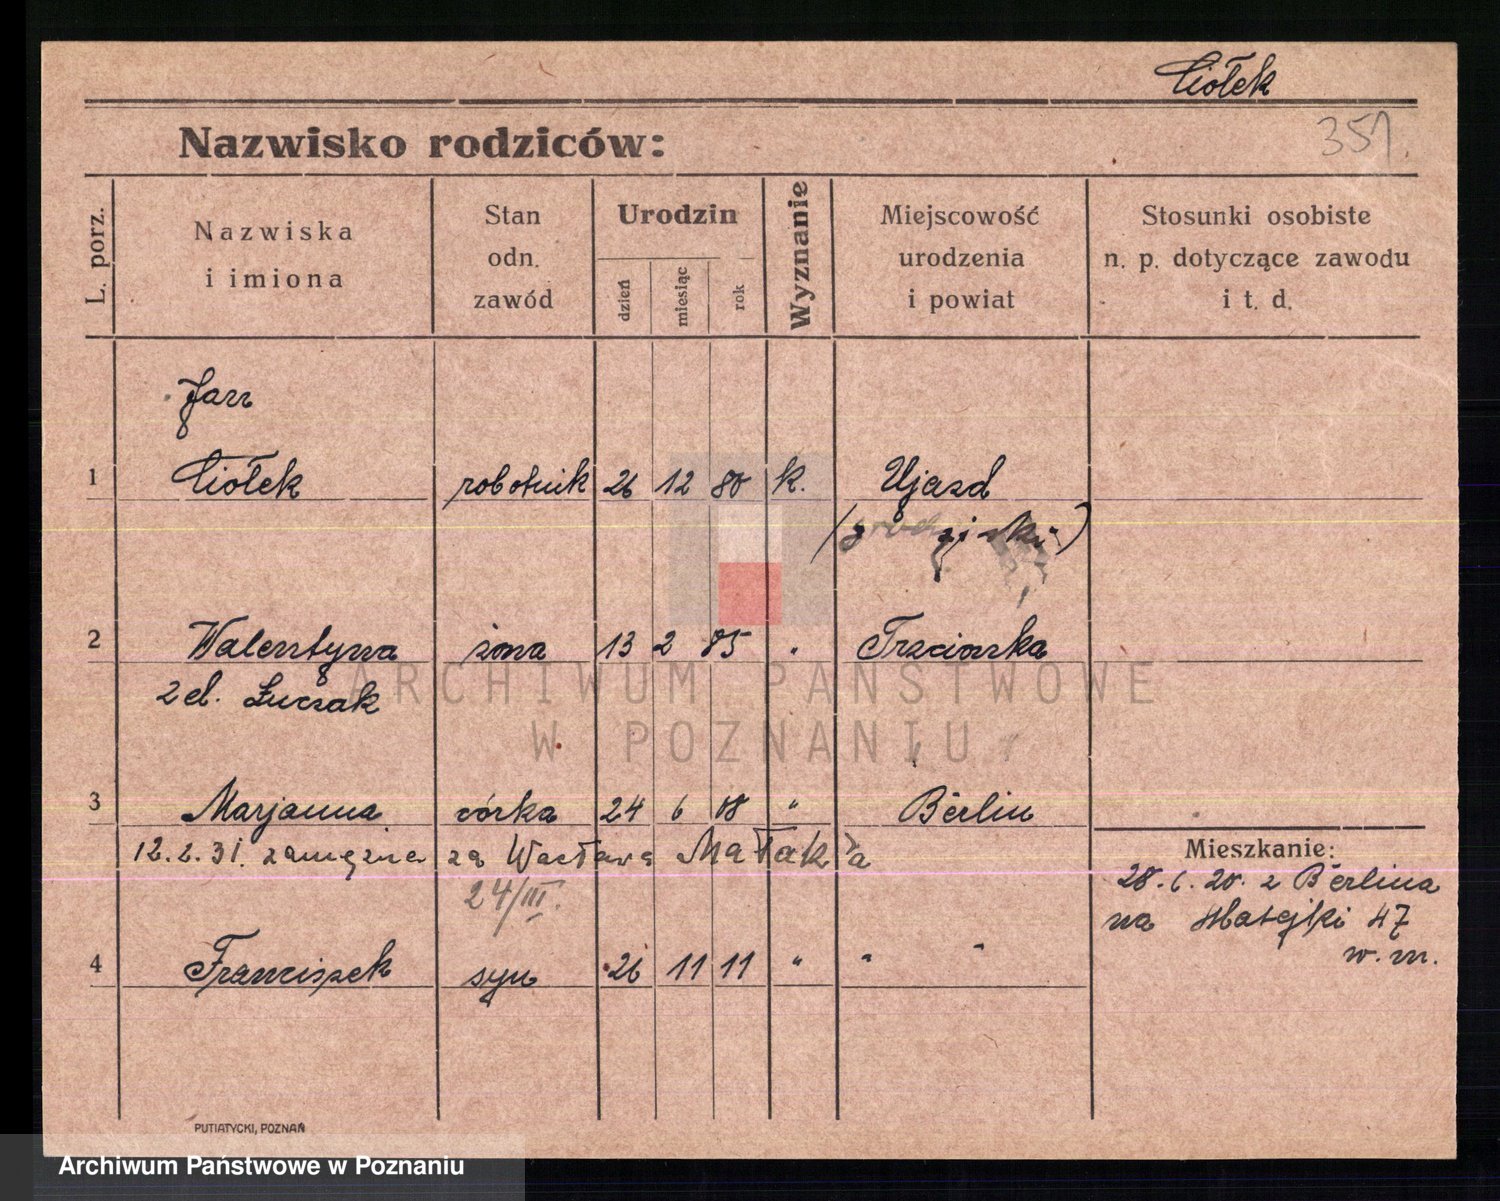 Ciołek
351.
Nazwisko rodziców:
L. porz.
Nazwiska
i imiona
Stan
odn.
zawód
Urodzin
dzień
miesiąc
rok
Wyznanie
Miejscowość
urodzenia
i powiat
Stosunki osobiste
n. p. dotyczące zawodu
i t. d.
Jan
1 Ciołek robotnik 26 12 80 k. Ujazd
(grodziski)
2 Walentyna żona 13 2 85 " Trzcionka
z d. Łuczak
3 Marjanna córka 24 6 08 " Berlin
12.2.31. zamężna za Wacława Matakła
24/III.
4 Franciszek syn 26 11 11 " " "
Mieszkanie:
28.6.20. z Berlina
na Matejki 47
w. m.
PUTIATYCKI, POZNAŃ
ARCHIWUM PAŃSTWOWE
W POZNANIU
Archiwum Państwowe w Poznaniu